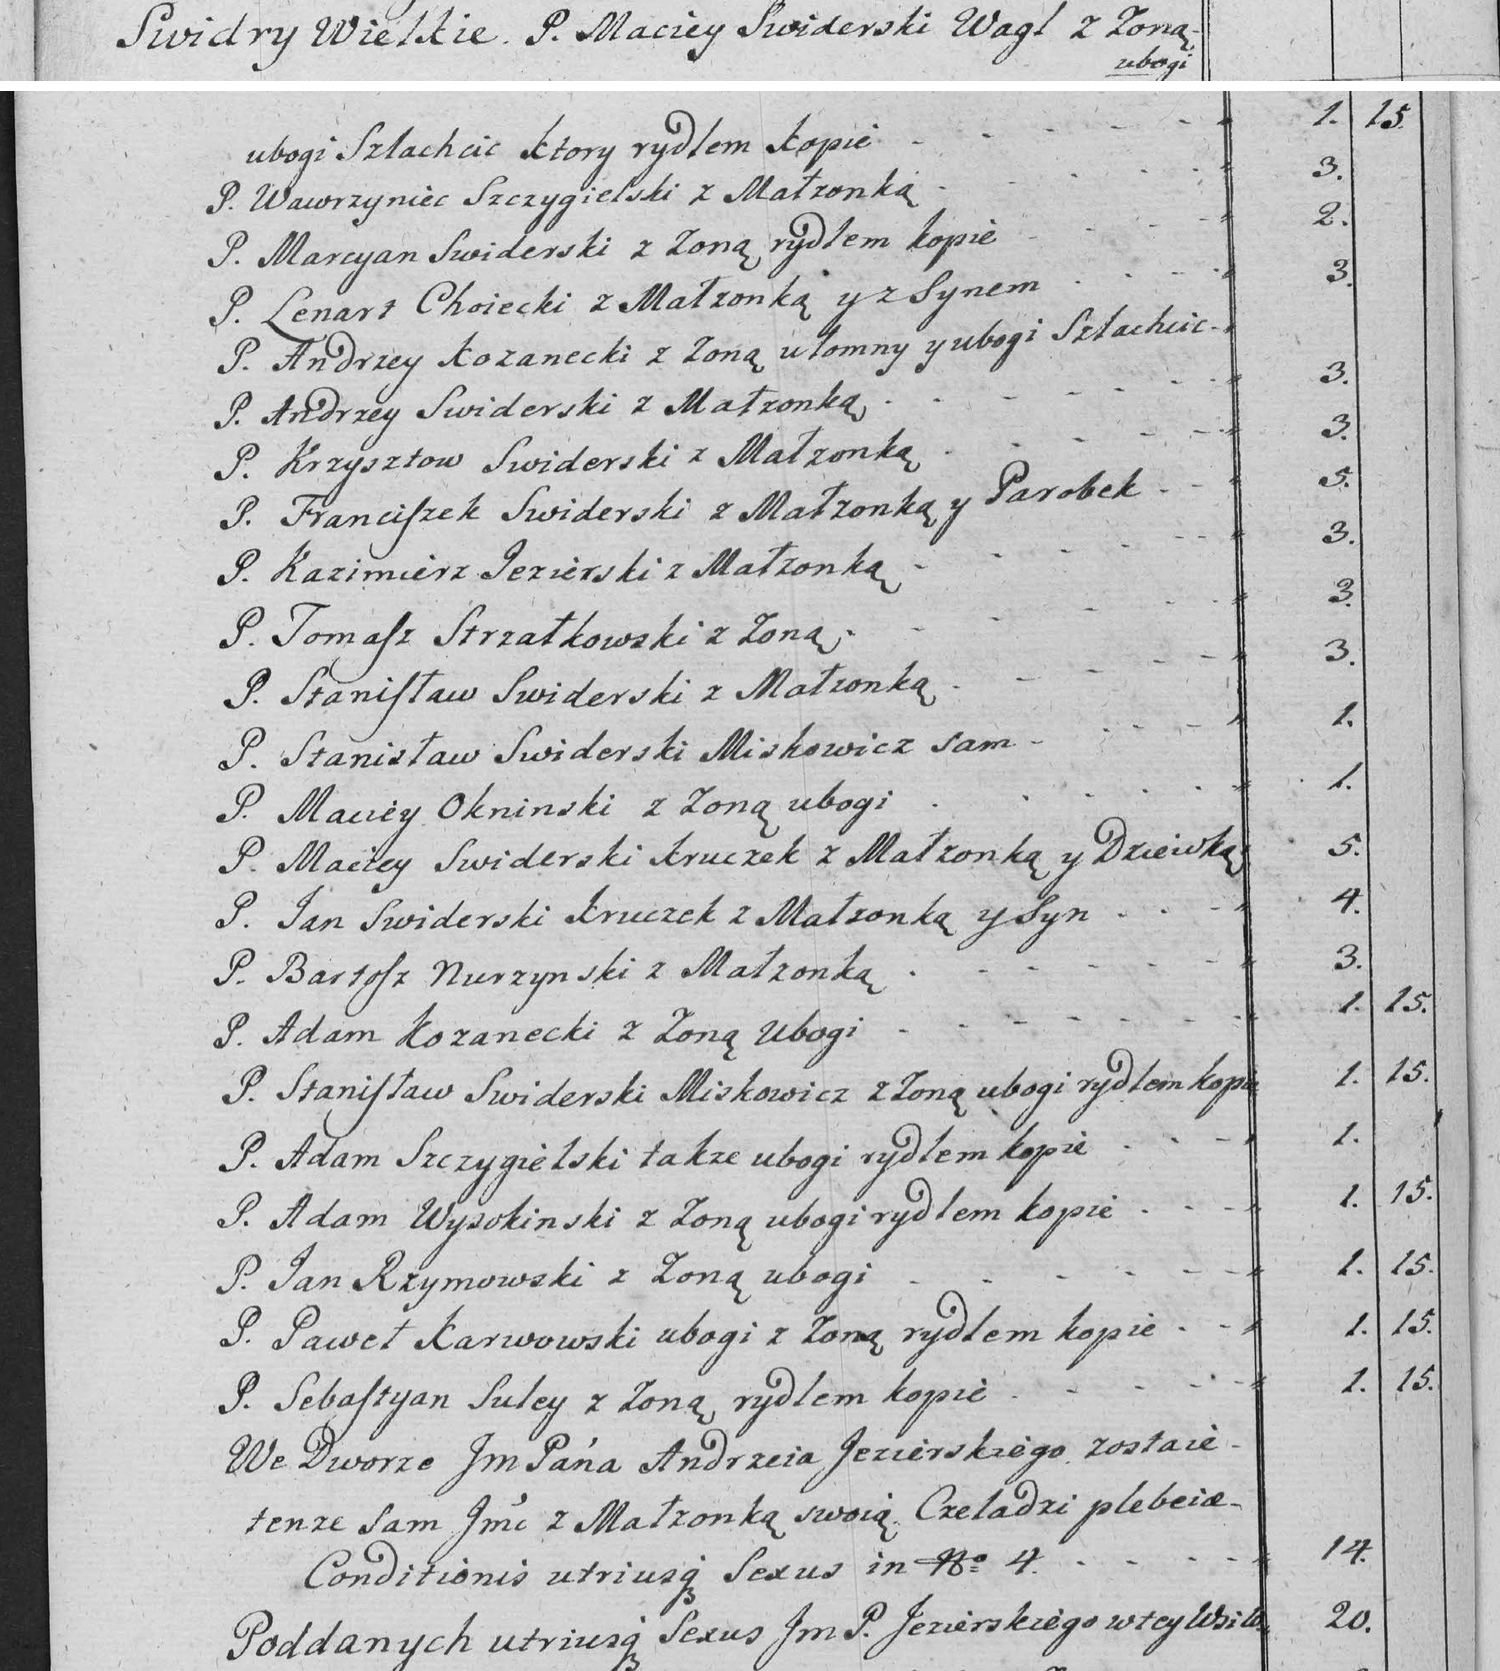 Swidry Wielkie. P. Maciey Swiderski Wagl z Zoną
ubogi
ubogi Szlachcic ktory rydlem kopie - - - - - - 1. 15.
P. Wawrzyniec Szczygielski z Małzonką - - - - - 3.
P. Marcyan Swiderski z Zoną rydlem kopie - - - - 2.
P. Lenart Choiecki z Małzonką y z Synem - - - - 3.
P. Andrzey Kozanecki z Zoną ułomny y ubogi Szlachcic
P. Andrzey Swiderski z Małzonką - - - - - - 3.
P. Krzysztow Swiderski z Małzonką - - - - - 3.
P. Franciszek Swiderski z Małzonką y Parobek - - 5.
P. Kazimierz Jezierski z Małzonką - - - - - 3.
P. Tomasz Strzałkowski z Zoną - - - - - - 3.
P. Stanisław Swiderski z Małzonką - - - - - 3.
P. Stanisław Swiderski Miskowicz sam - - - - 1.
P. Maciey Okninski z Zoną ubogi - - - - - - 1.
P. Maciey Swiderski Kruczek z Małzonką y Dziewką 5.
P. Jan Swiderski Kruczek z Małzonką y Syn - - - 4.
P. Bartosz Nurzynski z Małzonką - - - - - - 3.
P. Adam Kozanecki z Zoną Ubogi - - - - - - 1. 15.
P. Stanisław Swiderski Miskowicz z Zoną ubogi rydlem kopie 1. 15.
P. Adam Szczygielski takze ubogi rydlem kopie - - - 1.
P. Adam Wysokinski z Zoną ubogi rydlem kopie - - - 1. 15.
P. Jan Rzymowski z Zoną ubogi - - - - - - 1. 15.
P. Paweł Karwowski ubogi z Zoną rydlem kopie - - 1. 15.
P. Sebastyan Suley z Zoną rydlem kopie - - - - 1. 15.
We Dworze Jm Pána Andrzeia Jezierskiego zostaie
tenze Sam Jmć z Małzonką swoią Czeladzi plebeiæ
Conditionis utriusq Sexus in No 4. - - - - - 14.
Poddanych utriusq Sexus Jm P. Jezierskiego w tey Wsi 20.